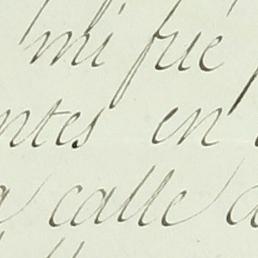 mi fué
ntes en
a calle d